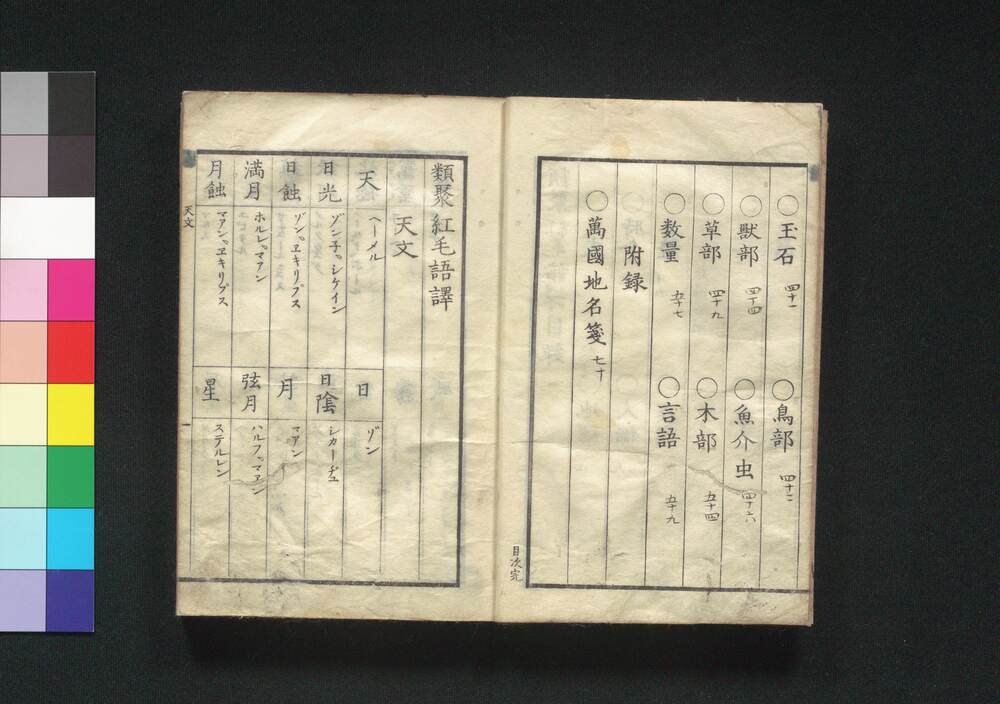 〇玉石 四十一
〇鳥部 四十二
〇獣部 四十四
〇魚介虫 四十六
〇草部 四十九
〇木部 五十四
〇数量 五十七
〇言語 五十九
附録
〇萬國地名箋 七十
目次完
類聚紅毛語譯
天文
天 ヘーメル
日 ゾン
日光 ゾン子ッシケイン
日陰 シカーヂュ
日蝕 ゾンッヱキリプス
月 マアン
満月 ホルレッマアン
弦月 ハルフッマアン
月蝕 マアンッヱキリプス
星 ステルレン
天文 一